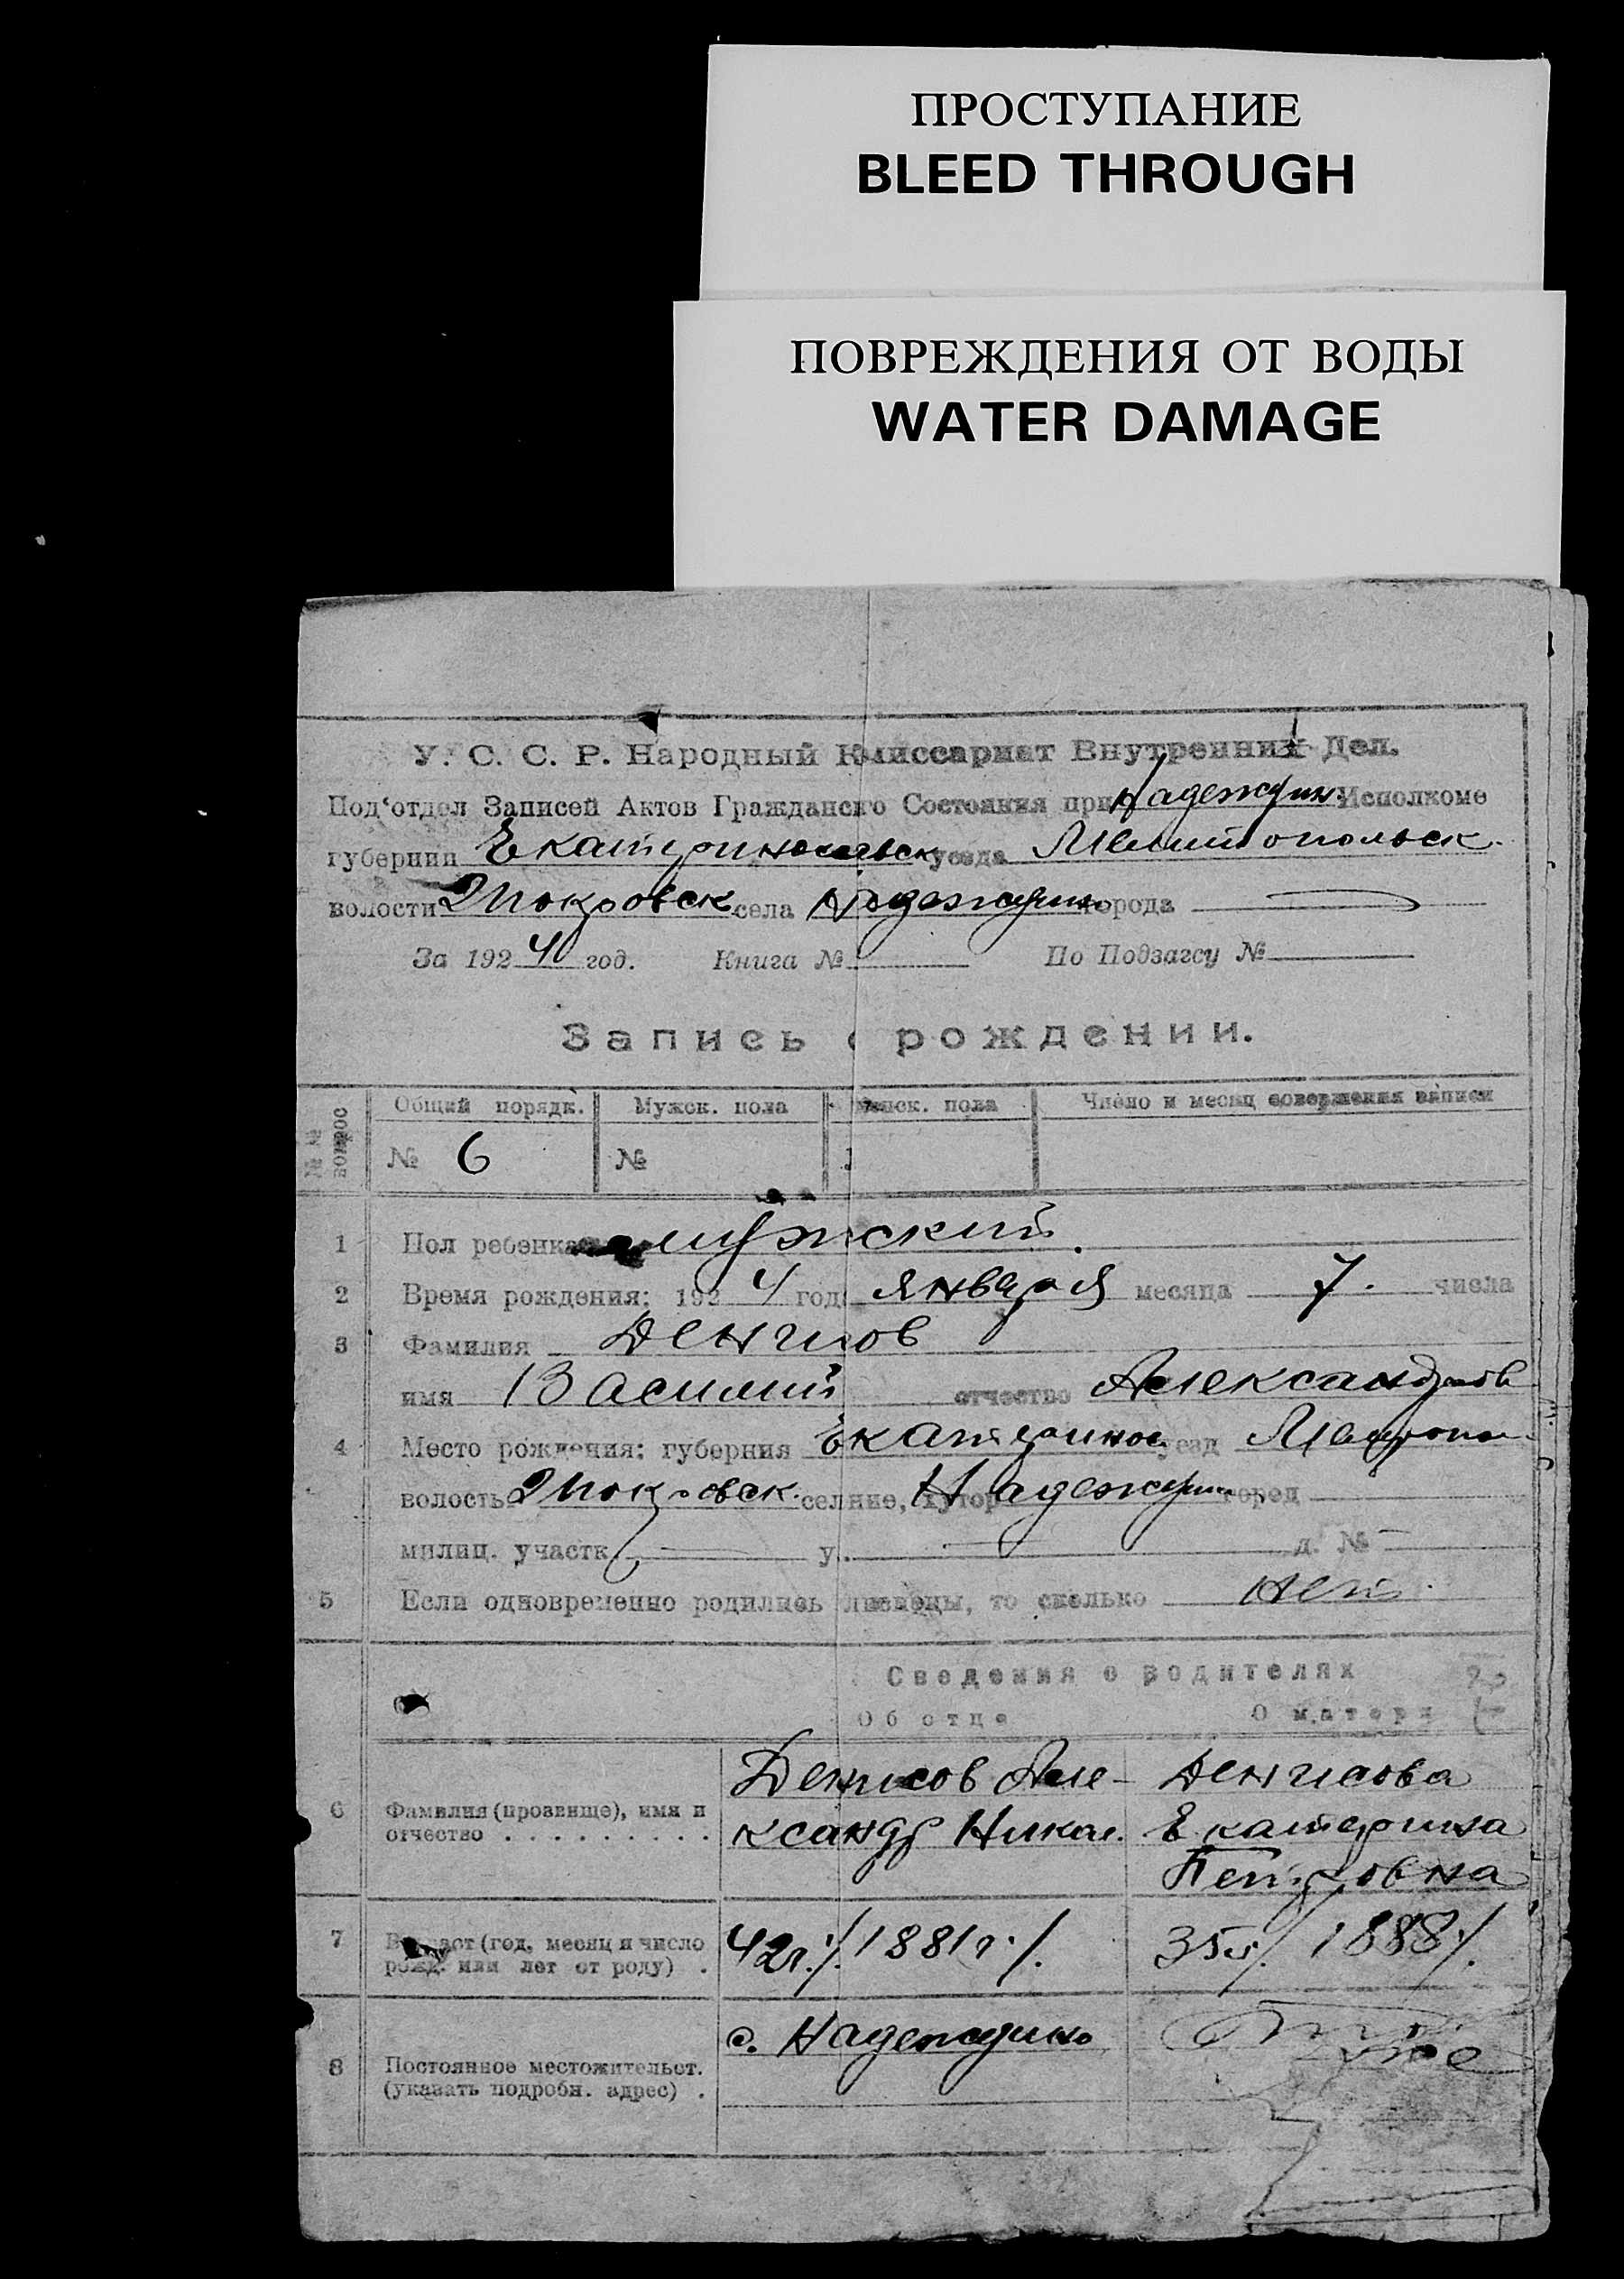 ПРОСТУПАНИЕ
BLEED THROUGH
ПОВРЕЖДЕНИЯ ОТ ВОДЫ
WATER DAMAGE
У. С. С. Р. Народный Кмиссариат Внутренних Дел.
Под‘отдел Записей Актов Гражданскго Состояния при Надеждин. Исполкоме
губернии Екатеринославск уезда Мелитопольск.
волости Покровск села Надеждино города
За 1924 год. Книга № По Подзагсу №
Запись о рождении.
№№ вопрос
Общий порядк. Мужск. пола Женск. пола Число и месяц совершения записи
№ 6 №
1 Пол ребенка мужской.
2 Время рождения: 1924 год января месяца 7. числа
3 Фамилия Денисов
имя Василий отчество Александров
4 Место рождения: губерния Екатеринос уезд Мелитопол
волость Покровск. селние, хутор Надеждин город
милиц. участк. у. д. № —
5 Если одновременно родились близнецы, то сколько нет.
Сведения о родителях
Об отце О матери
6 Фамилия (прозвище), имя и Денисов Але- Денисова
отчество . . . . . . . . . ксандр Никол. Екатерина
Петровна
7 Возраст (год, месяц и число 42г./. 1881г./. 35л/. 1888./.
рожд. или лет от роду) .
8 Постоянное местожительст. с. Надеждино
(указать подробн. адрес) . тоже